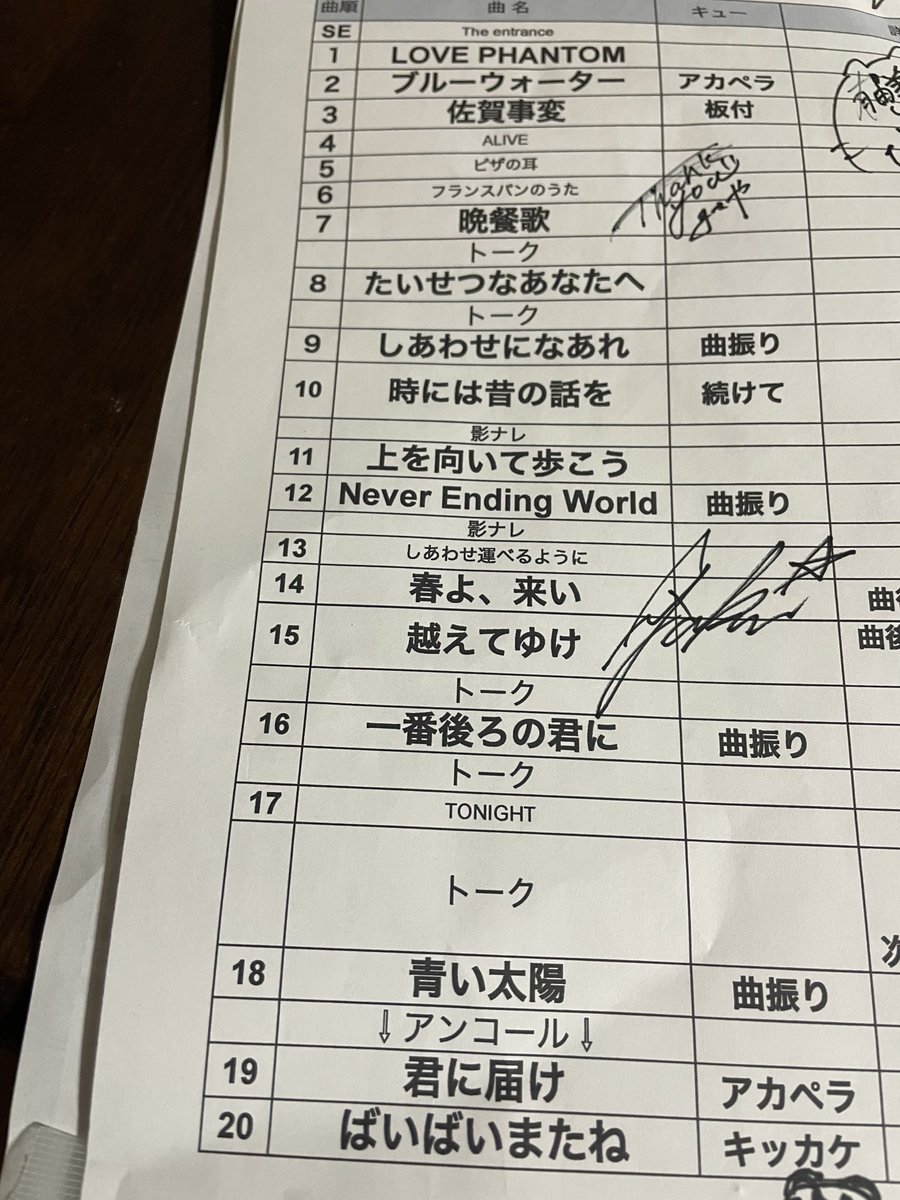 曲順 曲名 キュー
SE The entrance
1 LOVE PHANTOM
2 ブルーウォーター アカペラ
3 佐賀事変 板付
4 ALIVE
5 ピザの耳
6 フランスパンのうた
Thank you guys
7 晩餐歌
トーク
8 たいせつなあなたへ
トーク
9 しあわせになあれ 曲振り
10 時には昔の話を 続けて
影ナレ
11 上を向いて歩こう
12 Never Ending World 曲振り
影ナレ
13 しあわせ運べるように
14 春よ、来い
15 越えてゆけ
トーク
16 一番後ろの君に 曲振り
トーク
17 TONIGHT
トーク
18 青い太陽 曲振り
⇓アンコール⇓
19 君に届け アカペラ
20 ばいばいまたね キッカケ